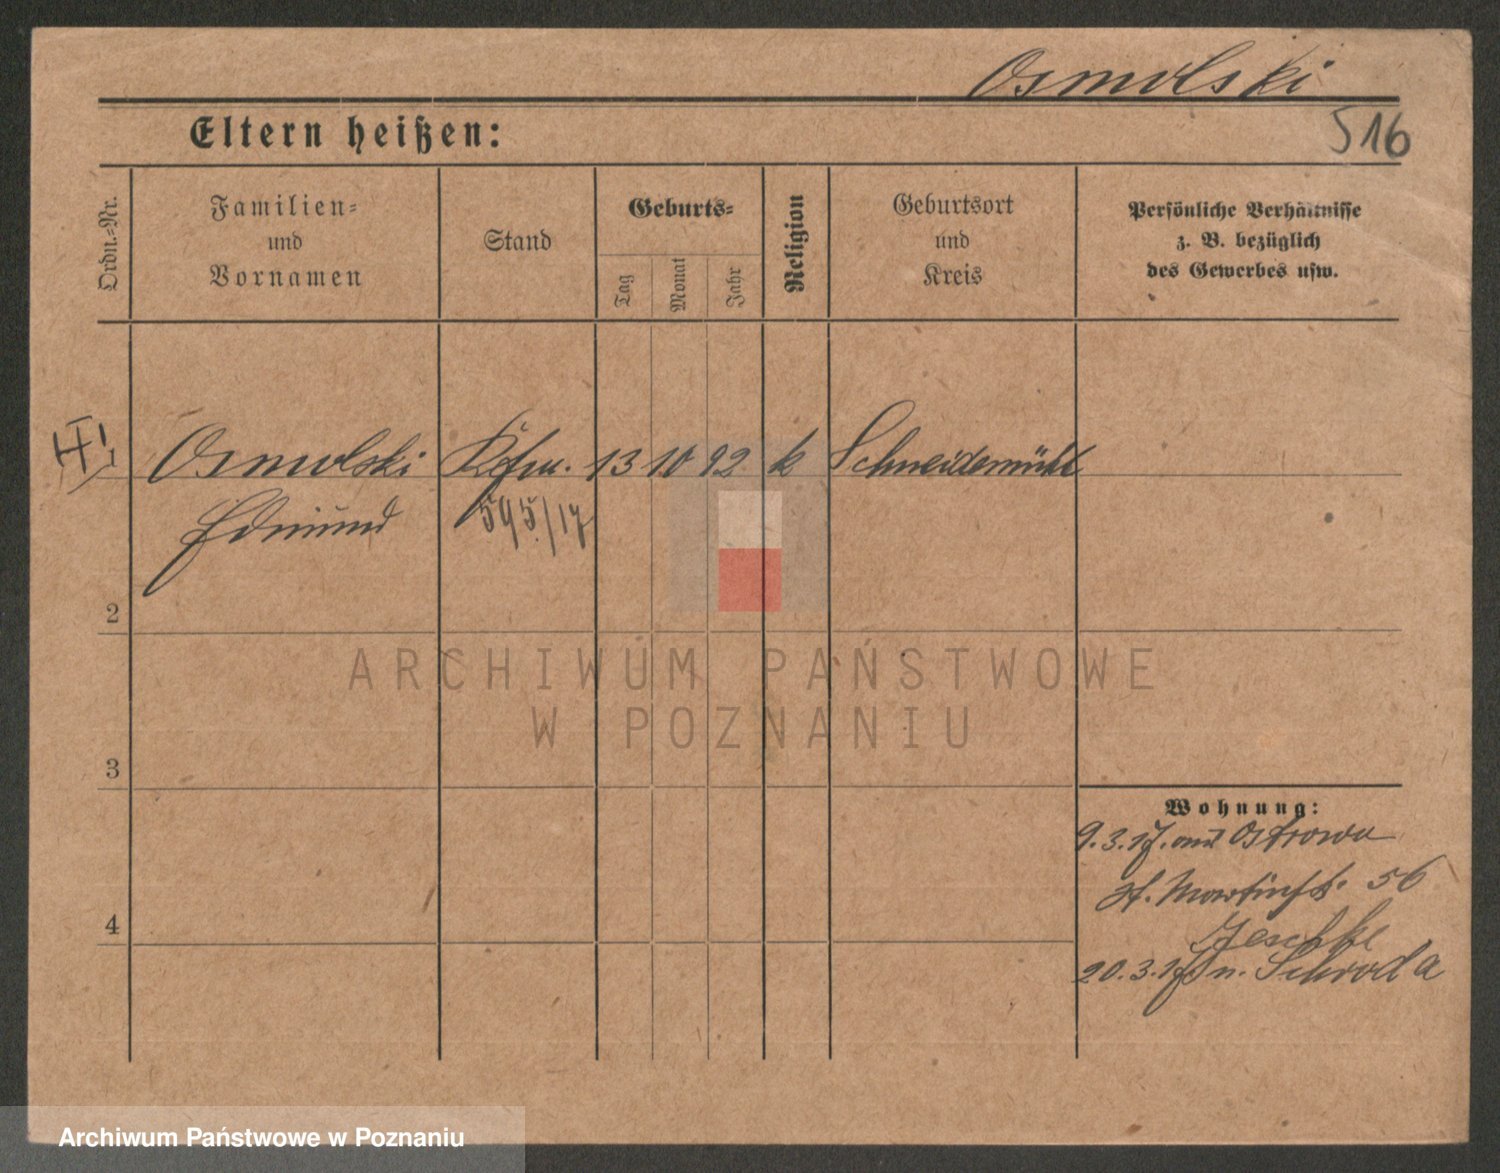 Osmolski
516
Eltern heißen:
Ordn.-Nr.
Familien-
und
Vornamen
Stand
Geburts-
Tag
Monat
Jahr
Religion
Geburtsort
und
Kreis
Persönliche Verhältnisse
z. B. bezüglich
des Gewerbes usw.
1 Osmolski Kfm. 13 10 92 k Schneidemühl
Edmund 595/17
2
3
4
Wohnung:
9.3.17. aus Ostrowo
St. Martinstr. 56
Jeschke
20.3.17 n. Schroda
ARCHIWUM PAŃSTWOWE
W POZNANIU
Archiwum Państwowe w Poznaniu